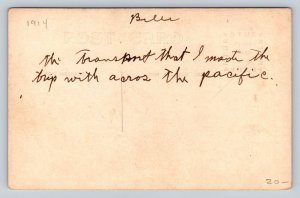 1914
Bill
the Transport that I made the
trip with acros the pacific.
20-